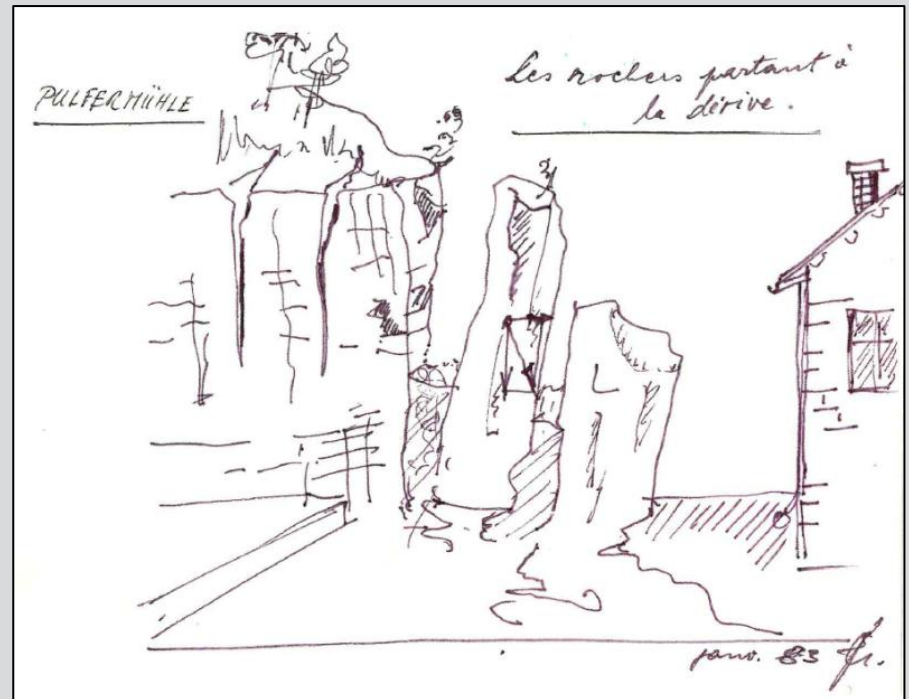 PULFERMÜHLE
Les rochers partant à
la dérive.
janv. 83